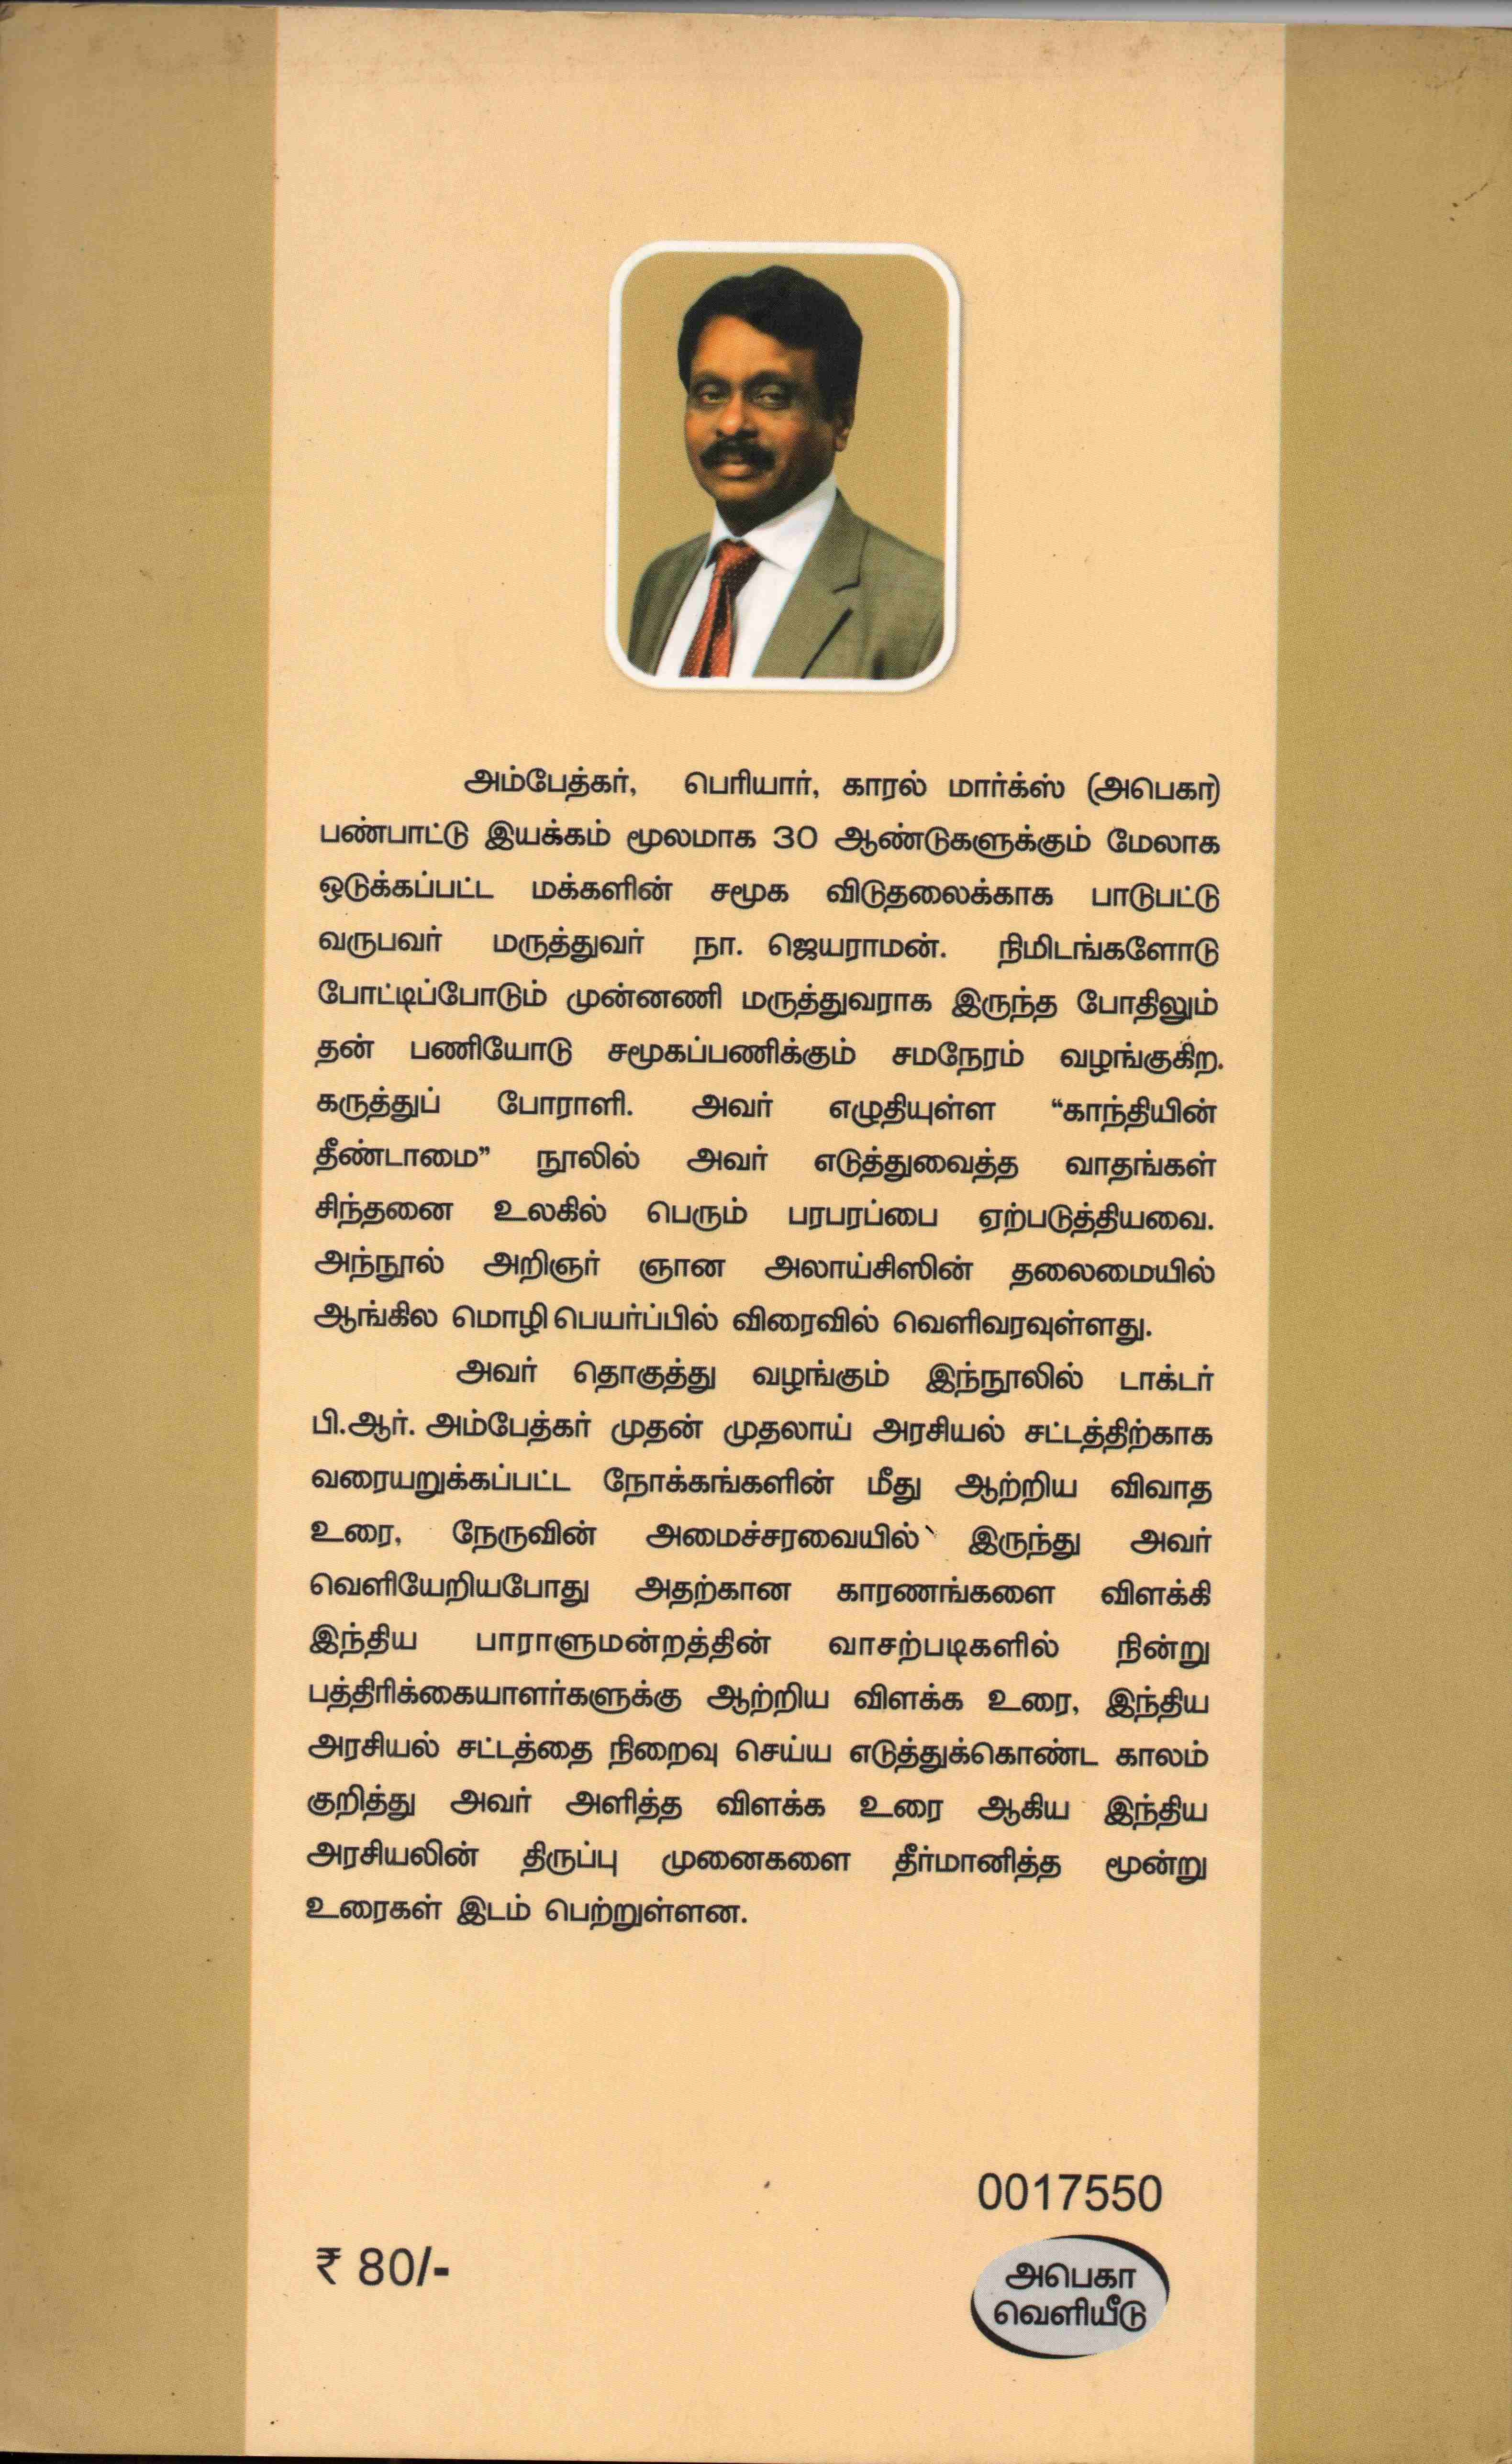 அம்பேத்கர், பெரியார், காரல் மார்க்ஸ் (அபெகா)
பண்பாட்டு இயக்கம் மூலமாக 30 ஆண்டுகளுக்கும் மேலாக
ஒடுக்கப்பட்ட மக்களின் சமூக விடுதலைக்காக பாடுபட்டு
வருபவர் மருத்துவர் நா. ஜெயராமன். நிமிடங்களோடு
போட்டிப்போடும் முன்னணி மருத்துவராக இருந்த போதிலும்
தன் பணியோடு சமூகப்பணிக்கும் சமநேரம் வழங்குகிற.
கருத்துப் போராளி. அவர் எழுதியுள்ள “காந்தியின்
தீண்டாமை” நூலில் அவர் எடுத்துவைத்த வாதங்கள்
சிந்தனை உலகில் பெரும் பரபரப்பை ஏற்படுத்தியவை.
அந்நூல் அறிஞர் ஞான அலாய்சிஸின் தலைமையில்
ஆங்கில மொழி பெயர்ப்பில் விரைவில் வெளிவரவுள்ளது.
அவர் தொகுத்து வழங்கும் இந்நூலில் டாக்டர்
பி.ஆர். அம்பேத்கர் முதன் முதலாய் அரசியல் சட்டத்திற்காக
வரையறுக்கப்பட்ட நோக்கங்களின் மீது ஆற்றிய விவாத
உரை, நேருவின் அமைச்சரவையில் இருந்து அவர்
வெளியேறியபோது அதற்கான காரணங்களை விளக்கி
இந்திய பாராளுமன்றத்தின் வாசற்படிகளில் நின்று
பத்திரிக்கையாளர்களுக்கு ஆற்றிய விளக்க உரை, இந்திய
அரசியல் சட்டத்தை நிறைவு செய்ய எடுத்துக்கொண்ட காலம்
குறித்து அவர் அளித்த விளக்க உரை ஆகிய இந்திய
அரசியலின் திருப்பு முனைகளை தீர்மானித்த மூன்று
உரைகள் இடம் பெற்றுள்ளன.
0017550
₹ 80/-
அபெகா
வெளியீடு